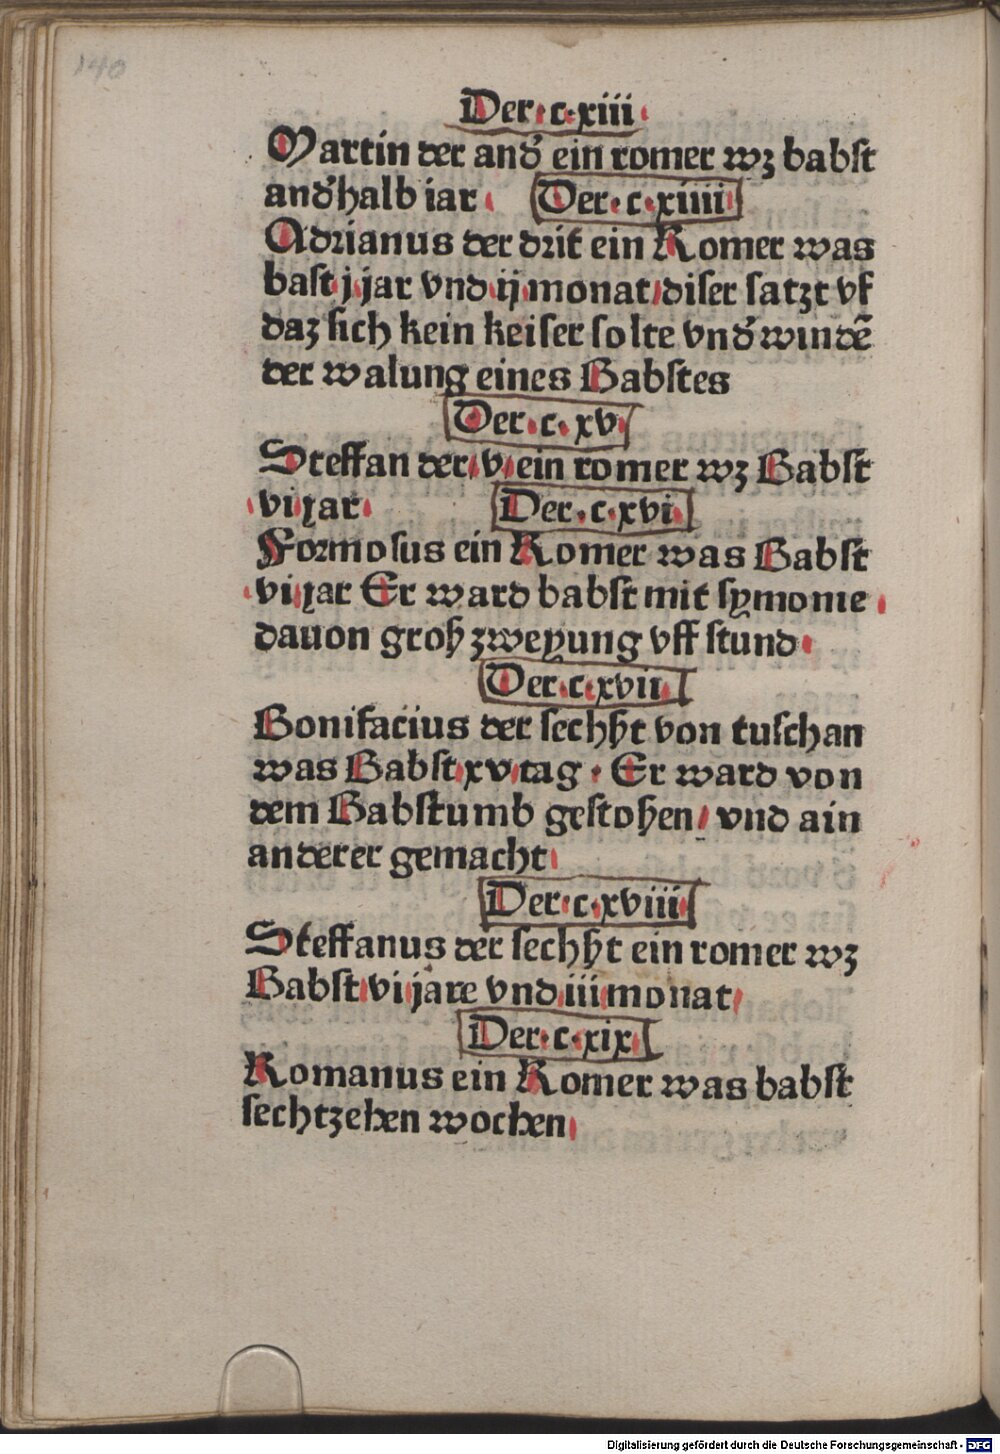 140
Der·c·xiii·
Martin der and̾ ein romer wz babst
and̾halb iar· Der·c·xiiii·
Adrianus der drit ein Romer was
bast·j·jar vnd·ij·monat/diser satzt vf
daz sich kein keiser solte vnd̾windē
der walung eines Babstes
Der·c·xv·
Steffan der·v·ein romer wz Babst
·vi·jar· Der·c·xvi·
Formosus ein Romer was Babst
·vi·jar Er ward babst mit symonie·
dauon groß zweyung vff stund·
Der·c·xvii·
Bonifacius der sechßt von tuschan
was Babst·xv·tag· Er ward von
dem Babstumb gestoßen/ vnd ain
anderer gemacht·
Der·c·xviii·
Steffanus der sechßt ein romer wz
Babst·vi·jare vnd·iii·monat·
Der·c·xix·
Romanus ein Romer was babst
sechtzehen wochen·
Digitalisierung gefördert durch die Deutsche Forschungsgemeinschaft - DFG